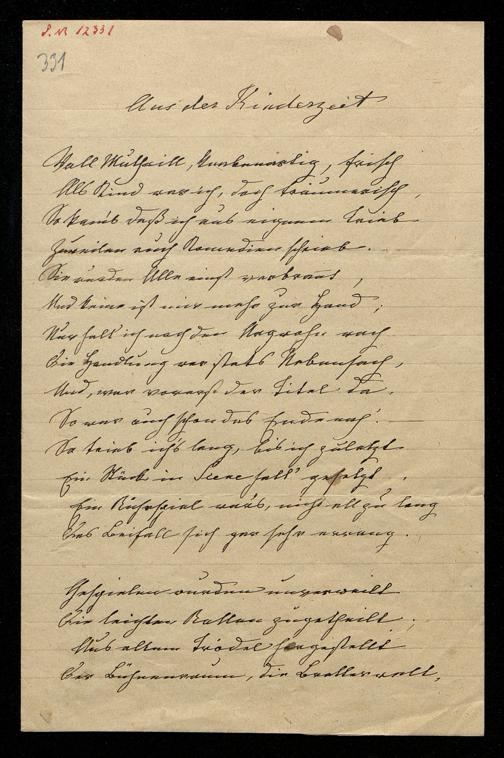 I.N. 12331
331
Aus der Kinderzeit
Voll Muthwill, knabenartig, frisch
Als Kind war ich, doch träumerisch,
So kam's daß ich aus eignem Trieb
Zuweilen auch Komedien schrieb.
Sie wurden Alle einst verbrannt,
Und keine ist mir mehr zur Hand;
Nur halt' ich noch den Argwohn wach
Die Handlung war stets Nebensach,
Und, war vorerst der Titel da,
So war auch schon das Ende nah'.
So trieb ich's lang, bis ich zuletzt
Ein Stück in Scene hatt' gesetzt,
Ein Rührspiel war's, nicht allzu lang
Das Beifall sich gar sehr errang.
Gespielen wurden unverweilt
Die leichten Rollen zugetheilt;
Aus altem Trödel hergestellt
Der Bühnenraum, die Bretterwelt,